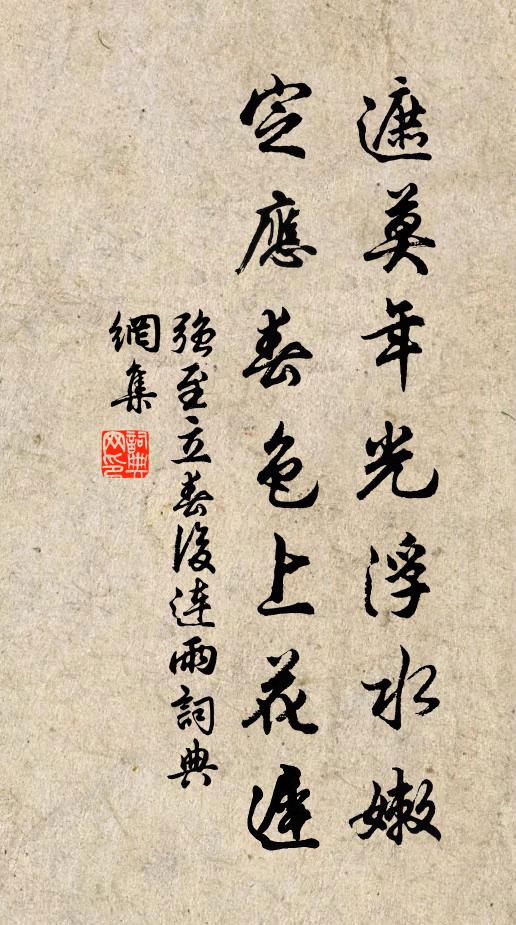 遮莫年光浮水嫩
定應春色上花遲
強至立春後連雨詞典
網集
詞典網印